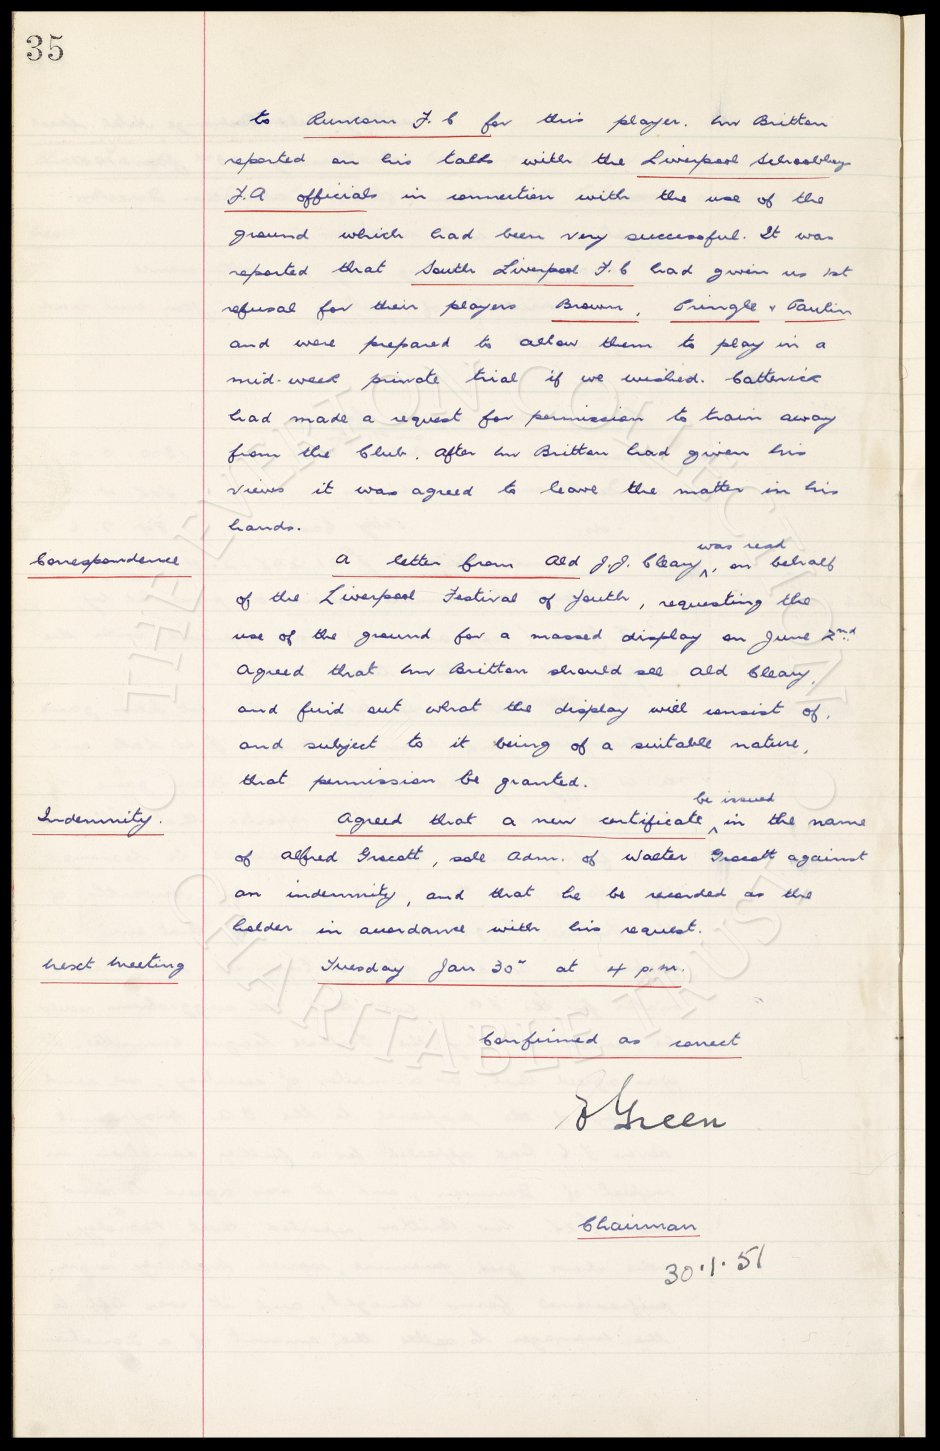 35
to Runcorn F.C for this player. Mr Britton
reported on his talks with the Liverpool Schoolboy
F.A officials in connection with the use of the
ground which had been very successful. It was
reported that South Liverpool F.C had given us 1st
refusal for their players Brown, Pringle & Paulin
and were prepared to allow them to play in a
mid-week private trial if we wished. Catterick
had made a request for permission to train away
from the Club. After Mr Britton had given his
views it was agreed to leave the matter in his
hands.
Correspondence
A letter from Ald J.J. Cleary ^ was read, on behalf
of the Liverpool Festival of Youth, requesting the
use of the ground for a massed display on June 2nd.
Agreed that Mr Britton should see Ald Cleary,
and find out what the display will consist of,
and subject to it being of a suitable nature,
that permission be granted.
Indemnity.
Agreed that a new certificate ^ be issued in the name
of Alfred Grocott, sole Adm. of Walter Grocott against
an indemnity, and that he be recorded as the
holder in accordance with his request.
Next Meeting
Tuesday Jan 30" at 4 p.m.
Confirmed as correct
E Green
Chairman
30.1.51
THE EVERTON COLLECTION
CHARITABLE TRUST